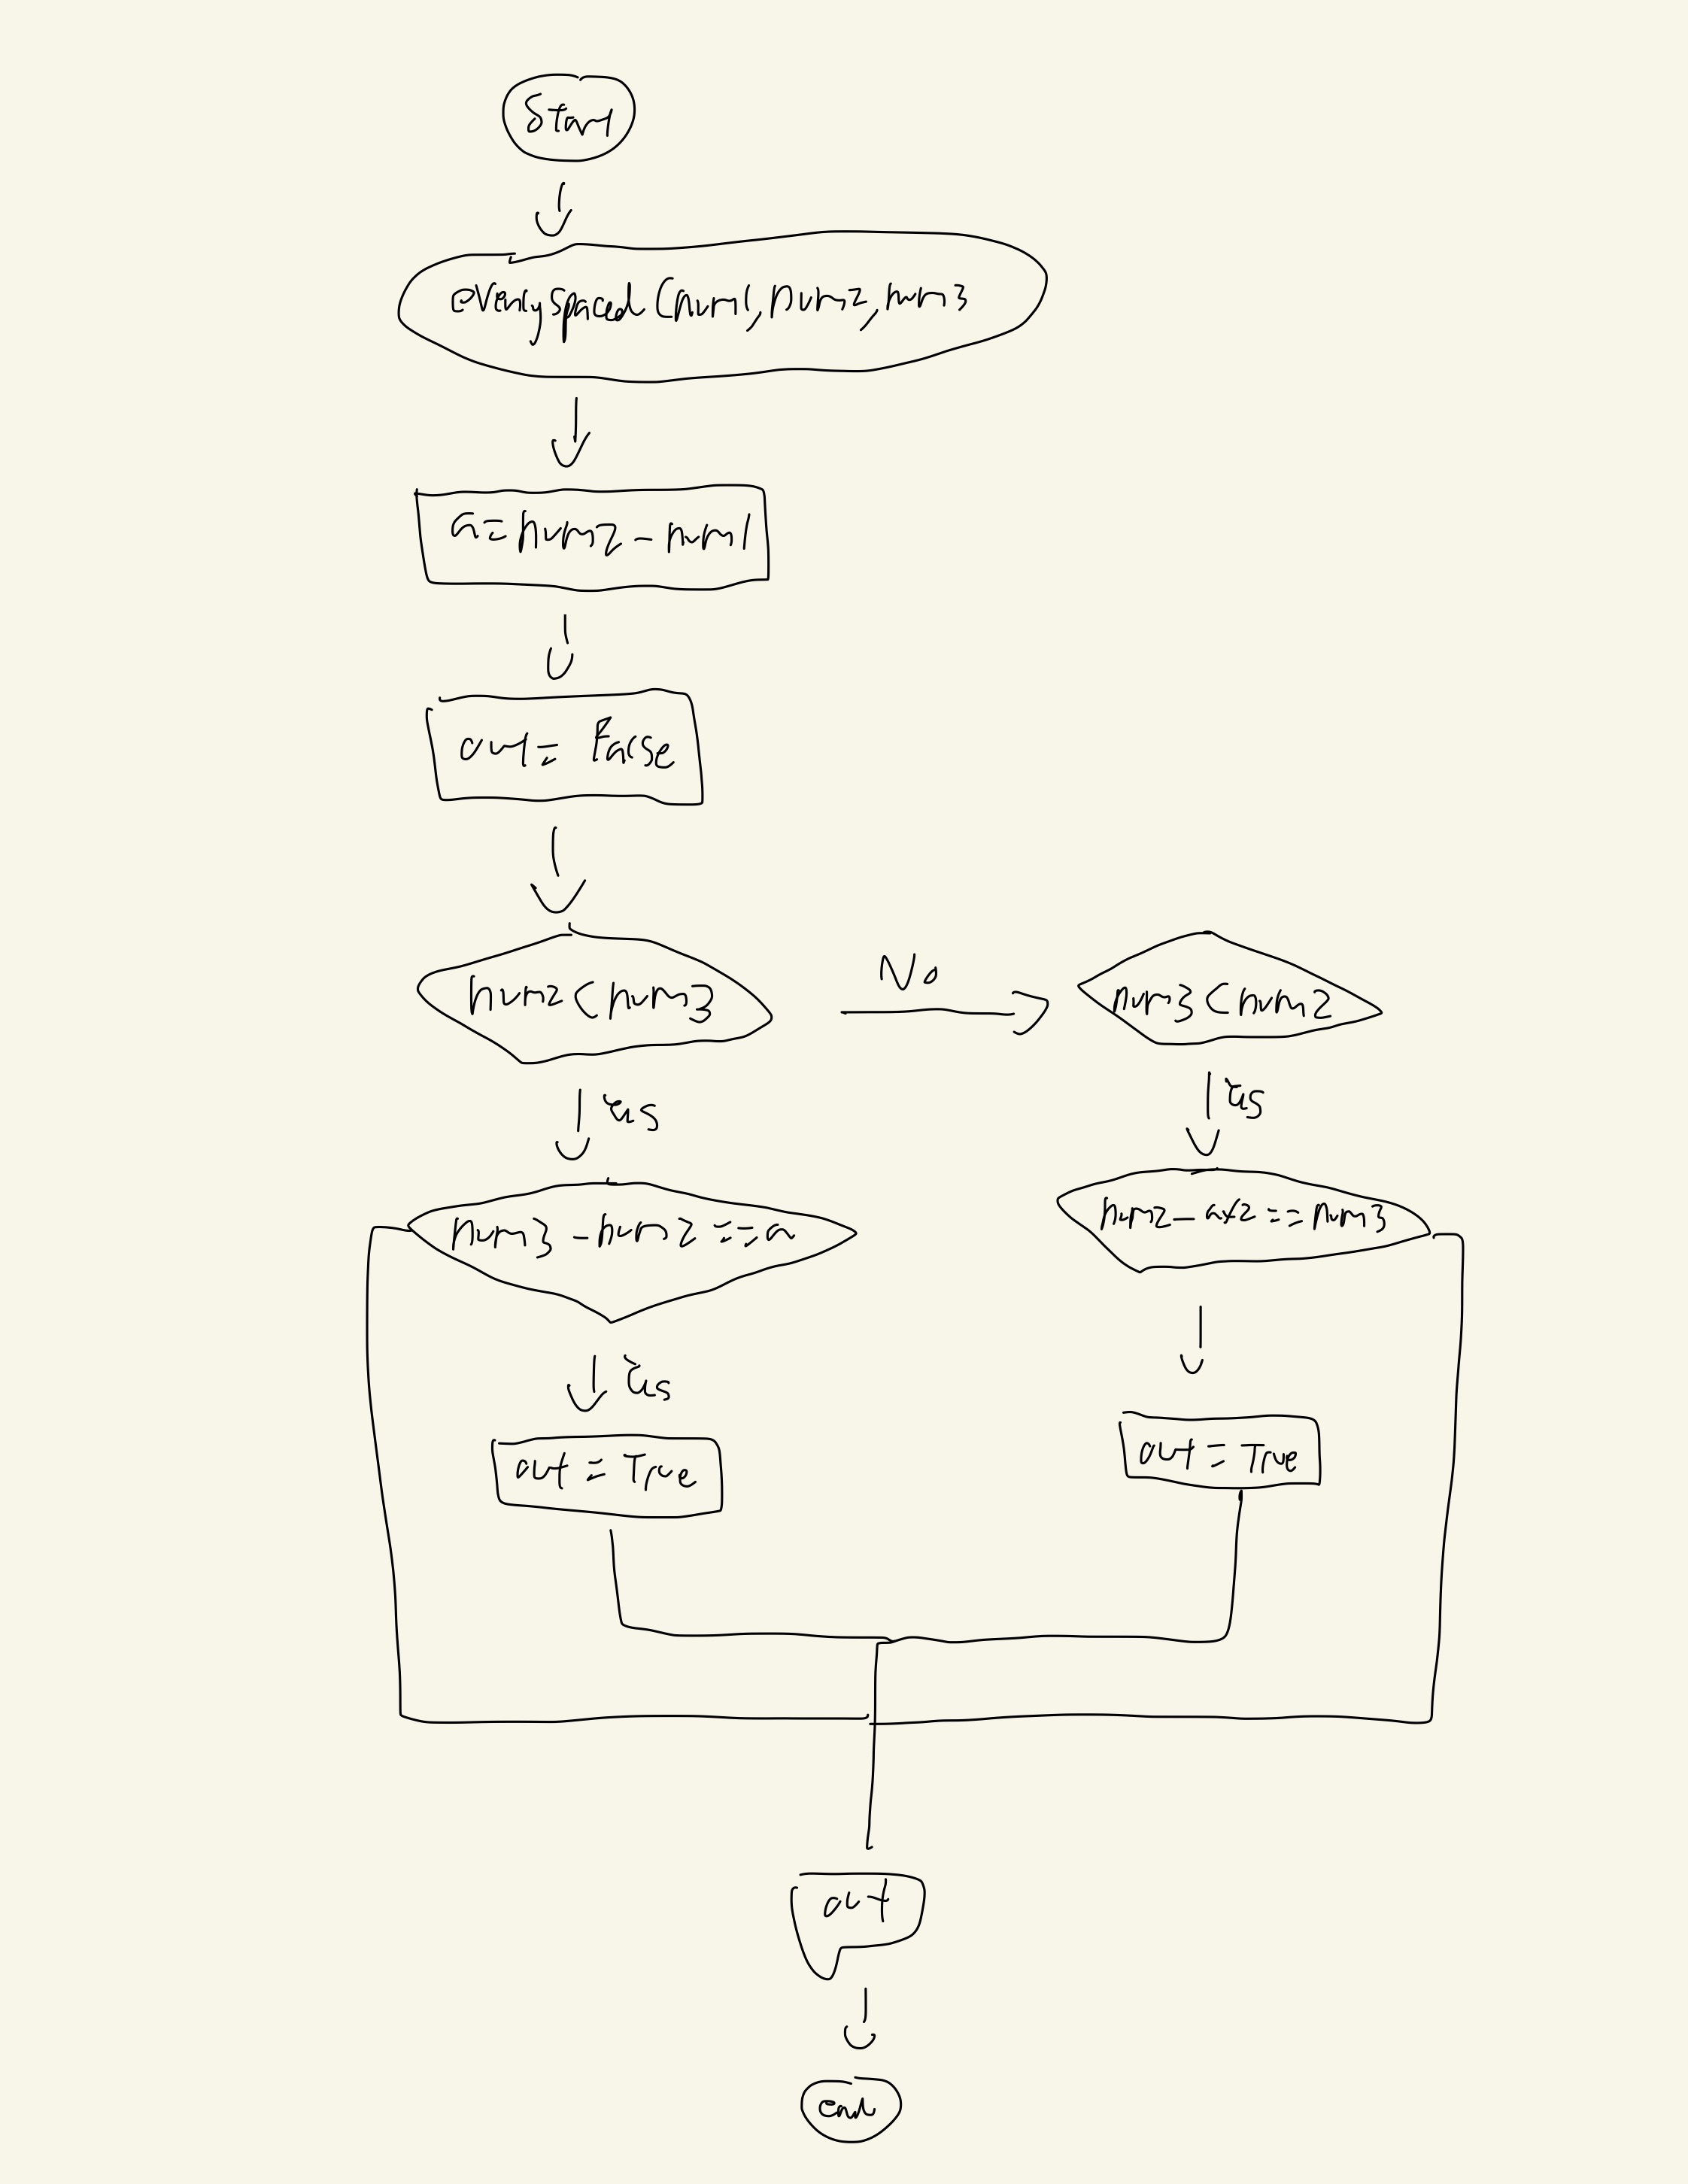 Start
evenlyspaced(num1, num2, num3
a = num2 - num1
out = False
num2 < num3
No
num3 < num2
Yes
Yes
num3 - num2 == a
num2 - a/2 == num3
Yes
out = True
out = True
out
end